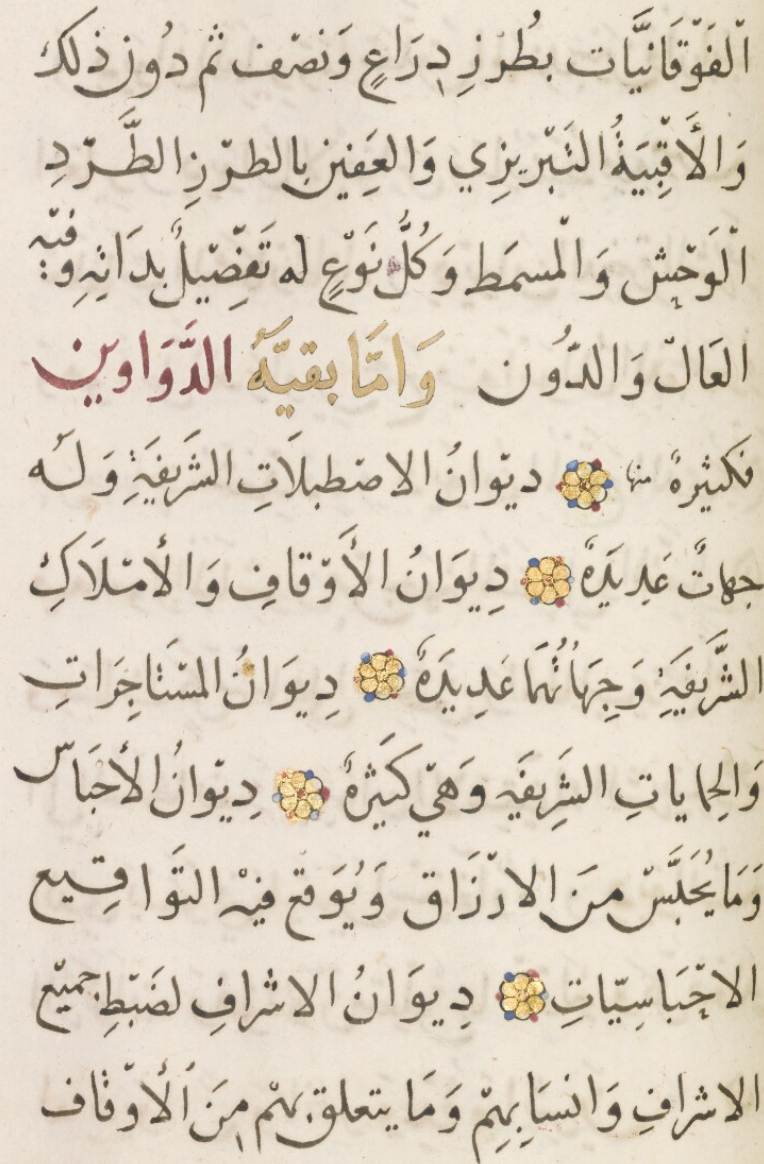 الْفَوْقَانِيَّات بطُرْزِ دِرَاعٍ وَنصْف ثم دُون ذلك
وَالأَقْبِيَةُ التَبْريزي وَالعَفِين بالطرْزِ الطَّرْدِ
الْوَحْش وَالْمسمَط وَكُلُّ نَوْعٍ له تَفْضِيْلٌ بذَاتِهِ وفيْه
العَالْ وَالدّوُن وَامَّا بقيَّةُ الدَّوَاوين
فكثيرةٌ منها ديْوانُ الاصْطبلَاتِ الشَريفَةِ وَلَهُ
جهاتٌ عَدِيْدَةٌ دِيوَانُ الأَوْقافِ وَالأمْلَاكِ
الشَّريفَةِ وَجِهَاتُهُمَا عَدِيْدَةٌ دِيوَانُ المسْتَاجِرَاتِ
وَالِحمايَاتِ الشَرِيفَه وَهيْ كَثيرْةٌ دِيْوانُ الأحْبَاسْ
وَمَا يُحَبَّسْ منَ الارْزَاق وَيُوَقع فيْه التوَاقِيع
الاحْبَاسِيّاتِ دِيوَانُ الاشرافِ لضَبْطِ جميْع
الاشرافِ وَانسَابِهِمْ وَمَا يتعلق بهمْ مِنَ الأَوْقاف